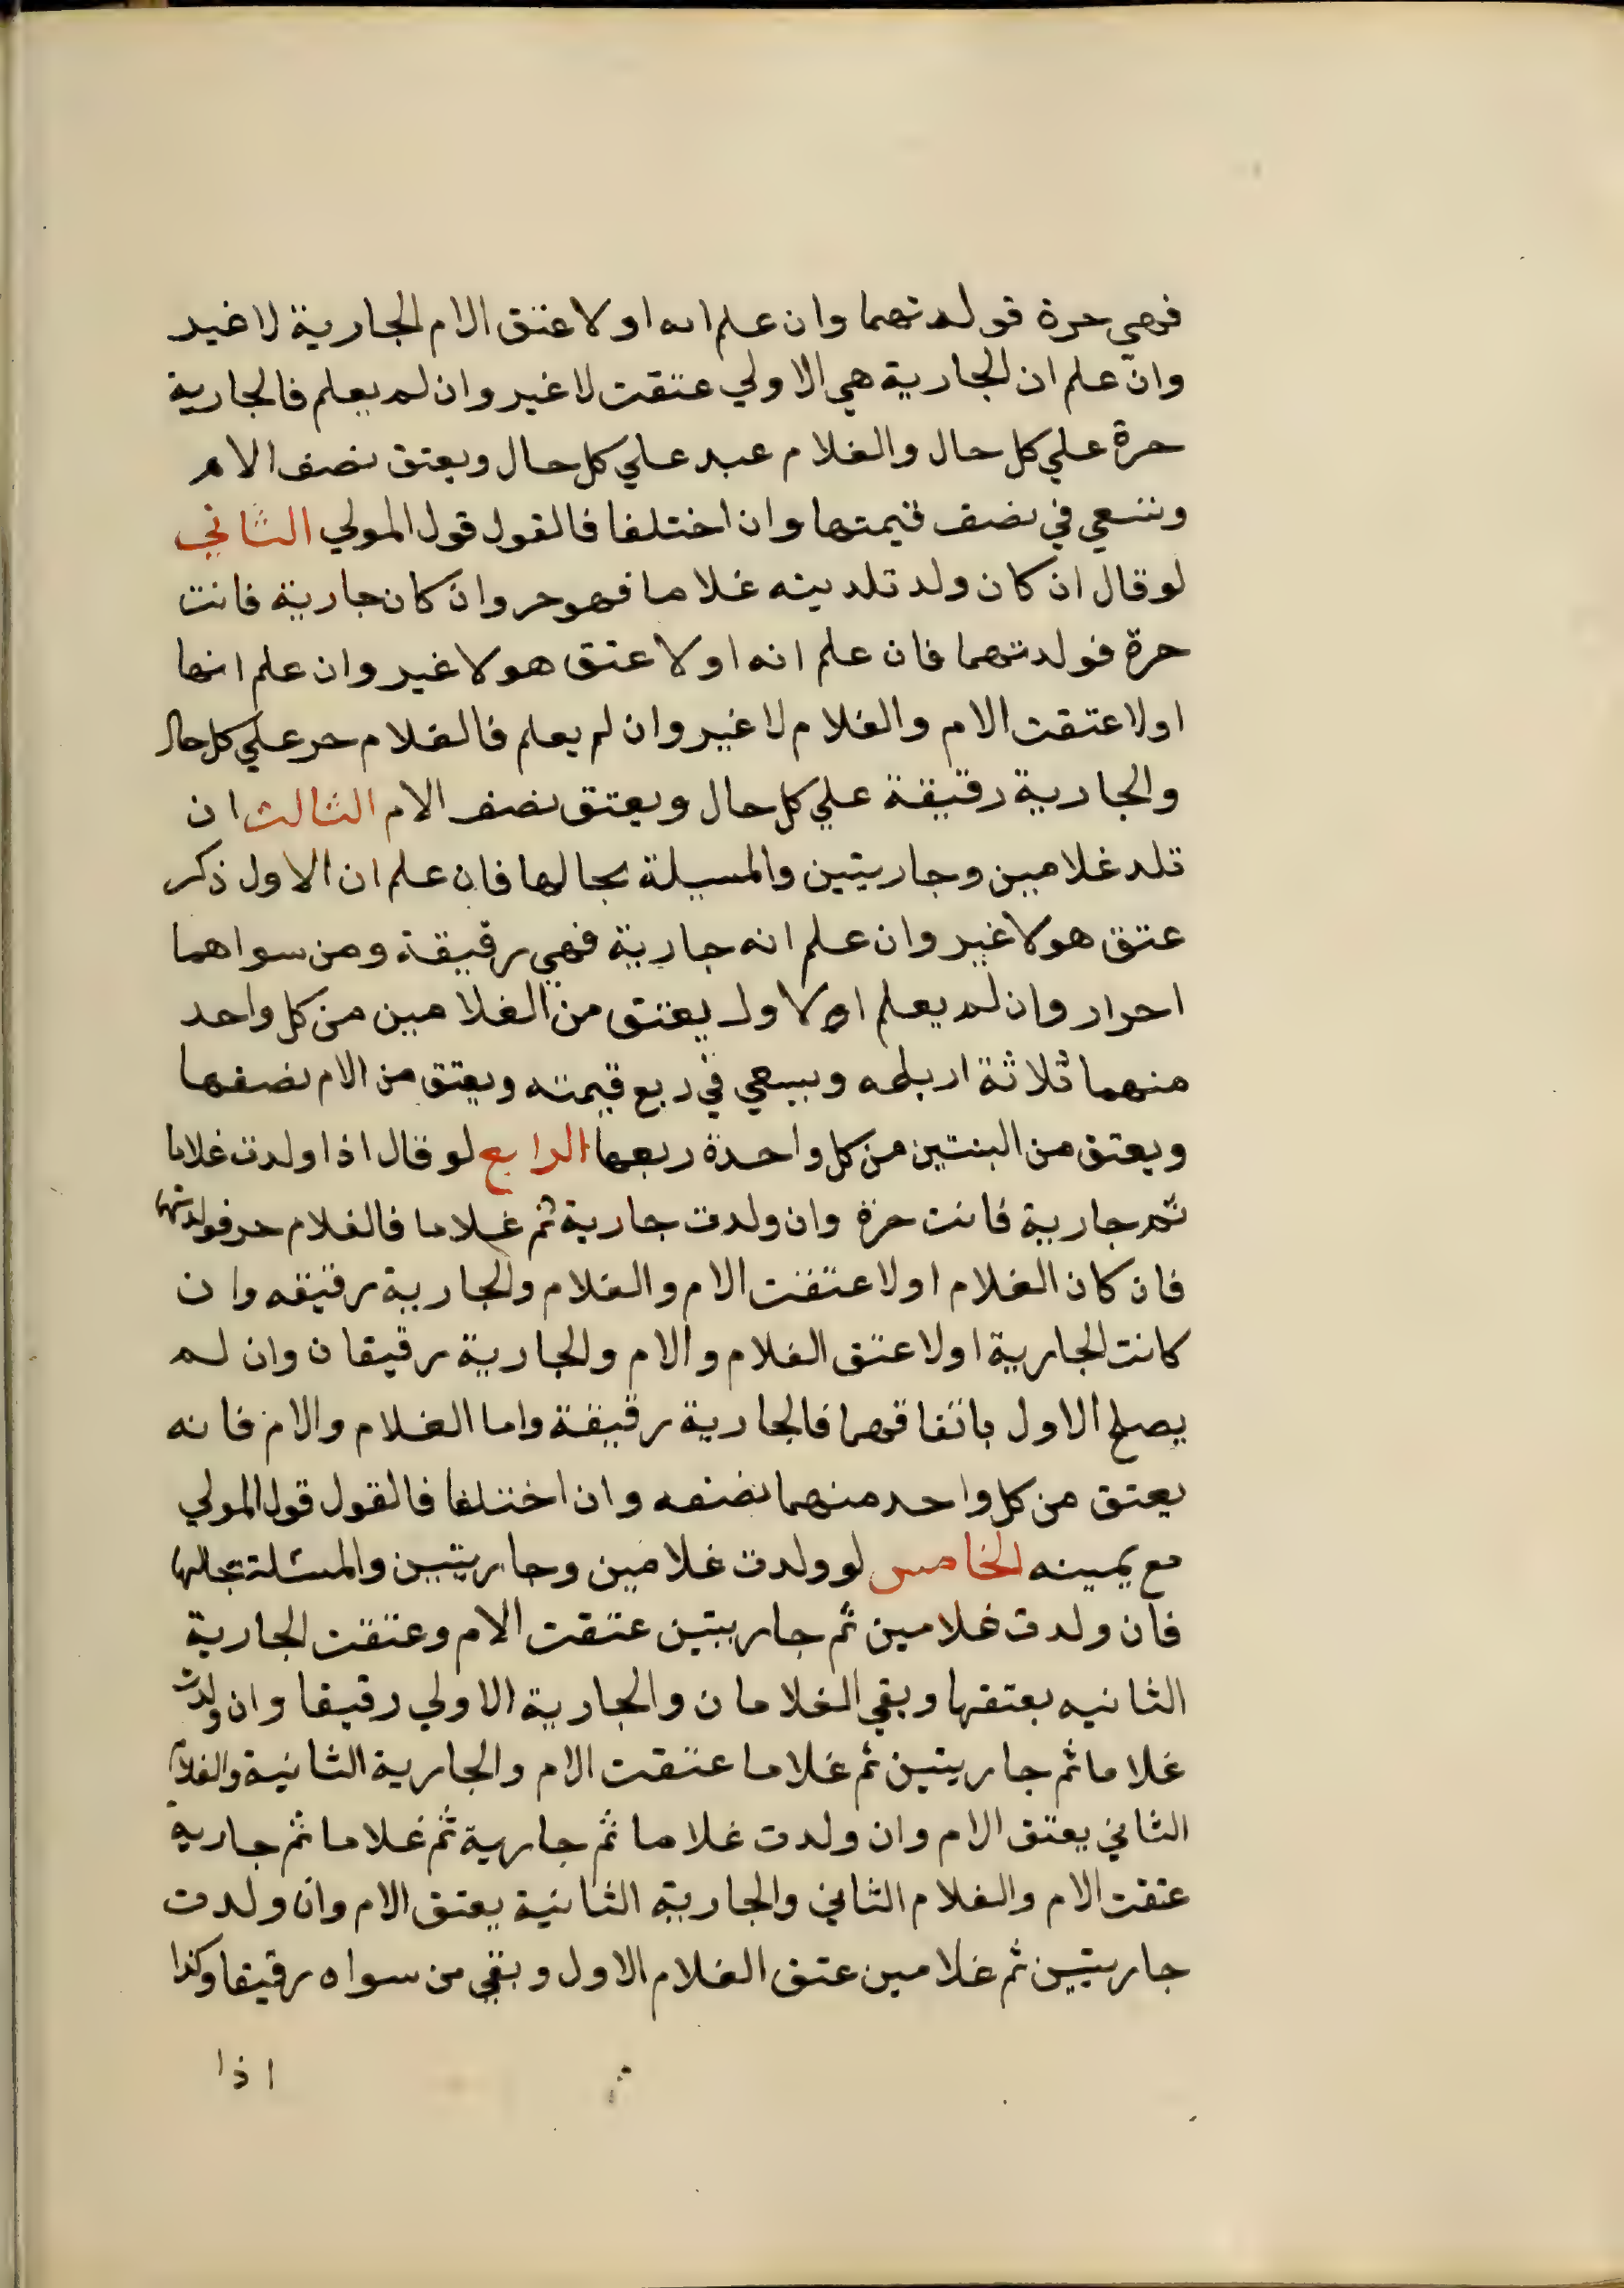 فهي حرة فولدتهما وان علم انه اولا عتق الام الجارية لا غير
وان علم ان الجارية هي الاولي عتقت لا غير وان لم يعلم فالجارية
حرة علي كل حال والغلام عبد علي كل حال ويعتق نصف الام
وتسعي في نصف قيمتها وان اختلفا فالقول قول المولي الثاني
لو قال ان كان ولد تلدينه غلاما فهو حر وان كان جارية فانت
حرة فولدتهما فان علم انه اولا عتق هو لا غير وان علم انها
اولا عتقت الام والغلام لا غير وان لم يعلم فالغلام حر علي كل حال
والجارية رقيقة علي كل حال ويعتق نصف الام الثالث ان
تلد غلامين وجاريتين والمسيلة بحالها فان علم ان الاول ذكر
عتق هو لا غير وان علم انه جارية فهي رقيقة ومن سواهما
احرار وان لم يعلم الاول يعتق من الغلامين من كل واحد
منهما ثلاثة ارباعه ويسعي في ربع قيمته ويعتق من الام نصفها
ويعتق من البنتين من كل واحدة ربعها الرابع لو قال اذا ولدت غلاما
ثم جارية فانت حرة وان ولدت جارية ثم غلاما فالغلام حر فولدتهما
فان كان الغلام اولا عتقت الام والغلام والجارية رقيقه وان
كانت الجارية اولا عتق الغلام والام والجارية رقيقان وان لم
يصلح الاول باتفاقهما فالجارية رقيقة واما الغلام والام فانه
يعتق من كل واحد منهما نصفه وان اختلفا فالقول قول المولي
مع يمينه الخامس لو ولدت غلامين وجاريتين والمسئلة بحالها
فان ولدت غلامين ثم جاريتين عتقت الام وعتقت الجارية
الثانيه بعتقها وبقي الغلامان والجارية الاولي رقيقا وان ولدت
غلاما ثم جاريتين ثم غلاما عتقت الام والجارية الثانية والغلام
الثاني يعتق الام وان ولدت غلاما ثم جارية ثم غلاما ثم جارية
عتقت الام والغلام الثاني والجارية الثانية يعتق الام وان ولدت
جاريتين ثم غلامين عتق الغلام الاول وبقي من سواه رقيقا وكذا
اذا